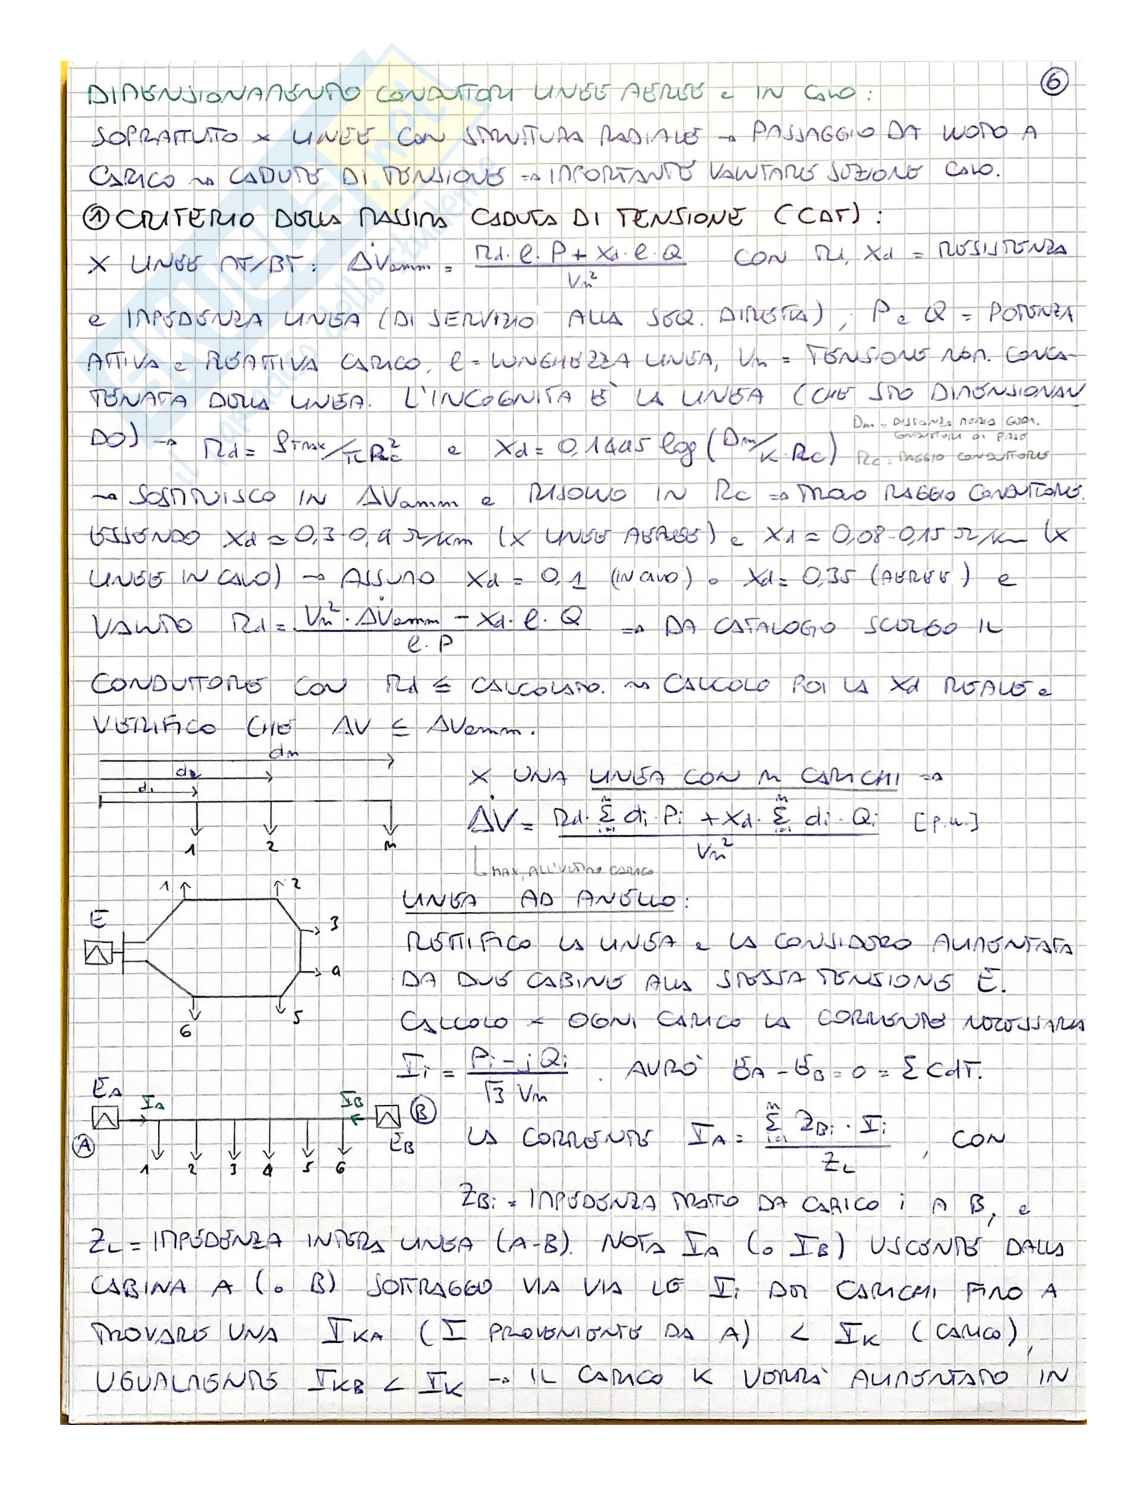 6
DIMENSIONAMENTO CONDUTTORI LINEE AEREE e IN CAVO:
SOPRATTUTO x LINEE CON STRUTTURA RADIALE → PASSAGGIO DA VUOTO A
CARICO → CADUTE DI TENSIONE ⇒ IMPORTANTE VALUTARE SEZIONE CAVO.
① CRITERIO DELLA MASSIMA CADUTA DI TENSIONE (CDT):
X LINEE MT/BT: ΔV̇amm = (Rd·ℓ·P + Xd·ℓ·Q)/Vn² CON Rd, Xd = RESISTENZA
e IMPEDENZA LINEA (DI SERVIZIO ALLA SEQ. DIRETTA), P e Q = POTENZA
ATTIVA e REATTIVA CARICO, ℓ = LUNGHEZZA LINEA, Vn = TENSIONE NOM. CONCA-
TENATA DELLA LINEA. L'INCOGNITA È LA LINEA (CHE STO DIMENSIONAN
DO) → Rd = ρTmax/πRc² e Xd = 0,1445 log(Dm/K·Rc)
Dm = DISTANZA MEDIA GEOM. CONDUTTORI DI FASE
Rc = RAGGIO CONDUTTORE
→ SOSTITUISCO IN ΔVamm e RISOLVO IN Rc ⇒ TROVO RAGGIO CONDUTTORE.
ESSENDO Xd ≃ 0,3-0,4 Ω/Km (X LINEE AEREE) e Xd ≃ 0,08-0,15 Ω/Km (X
LINEE IN CAVO) → ASSUMO Xd = 0,1 (IN CAVO) o Xd = 0,35 (AEREE) e
VALUTO Rd = (Vn²·ΔV̇amm - Xd·ℓ·Q)/(ℓ·P) ⇒ DA CATALOGO SCELGO IL
CONDUTTORE CON Rd ≤ CALCOLATO. → CALCOLO POI LA Xd REALE e
VERIFICO CHE ΔV ≤ ΔVamm.
dn
d2
d1
1 2 n
X UNA LINEA CON n CARICHI ⇒
ΔV̇ = (Rd·Σⁿᵢ₌₁ di·Pi + Xd·Σⁿᵢ₌₁ di·Qi)/Vn² [p.u.]
MAX, ALL'ULTIMO CARICO
1 2 3 4 5 6
E
LINEA AD ANELLO:
RETTIFICO LA LINEA e LA CONSIDERO ALIMENTATA
DA DUE CABINE ALLA STESSA TENSIONE E.
CALCOLO x OGNI CARICO LA CORRENTE NECESSARIA
Ii = (Pi - jQi)/(√3 Vn). AVRÒ EA - EB = 0 = Σ CdT.
EA IA IB B
A EB
1 2 3 4 5 6
LA CORRENTE IA = (Σⁿᵢ₌₁ ZBi·Ii)/ZL, CON
ZBi = IMPEDENZA TRATTO DA CARICO i A B, e
ZL = IMPEDENZA INTERA LINEA (A-B). NOTA IA (o IB) USCENTE DALLA
CABINA A (o B) SOTTRAGGO VIA VIA LE Ii DEI CARICHI FINO A
TROVARE UNA IKA (I PROVENIENTE DA A) < IK (CARICO),
UGUALMENTE IKB < IK → IL CARICO K VERRÀ ALIMENTATO IN